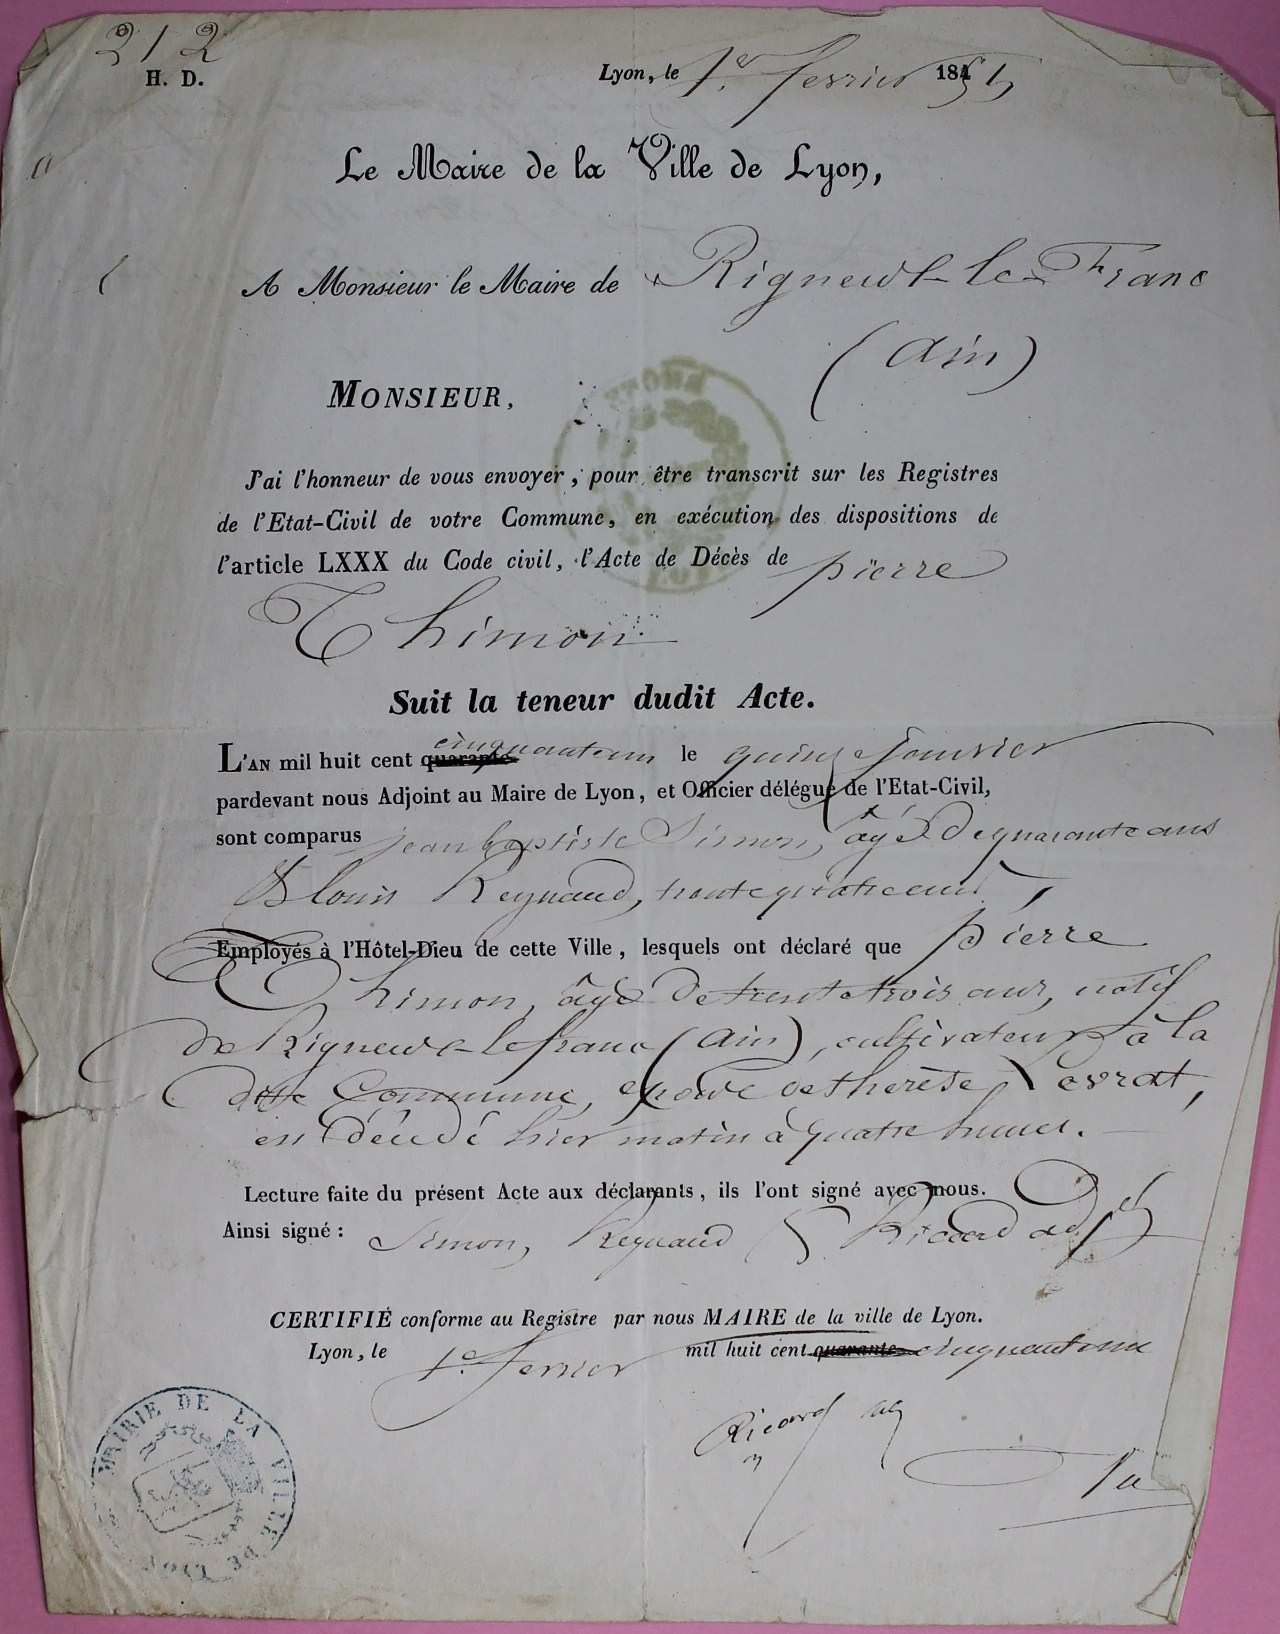 212
H. D.
Lyon, le 1er fevrier 1851
Le Maire de la Ville de Lyon,
A Monsieur le Maire de Rigneux-le-Franc
(Ain)
MONSIEUR,
J'ai l'honneur de vous envoyer, pour être transcrit sur les Registres
de l'Etat-Civil de votre Commune, en exécution des dispositions de
l'article LXXX du Code civil, l'Acte de Décès de pierre
Thimon
Suit la teneur dudit Acte.
L'AN mil huit cent quarante cinquanteun le quinze janvier
pardevant nous Adjoint au Maire de Lyon, et Officier délégué de l'Etat-Civil,
sont comparus jean baptiste Simon, âgé de quarante ans
& louis Reynaud, trente quatre ans,
Employés à l'Hôtel-Dieu de cette Ville, lesquels ont déclaré que pierre
Thimon, âgé de trente trois ans, natif
de Rigneux-le franc (Ain), cultivateur à la
dite Commune, époux de therèse Levrat,
est décédé hier matin à quatre heures.
Lecture faite du présent Acte aux déclarants, ils l'ont signé avec nous.
Ainsi signé : Simon, Reynaud & Ricard adjt
CERTIFIÉ conforme au Registre par nous MAIRE de la ville de Lyon.
Lyon, le 1er fevrier mil huit cent quarante cinquanteun
Ricard adj
MAIRIE DE LA VILLE DE LYON